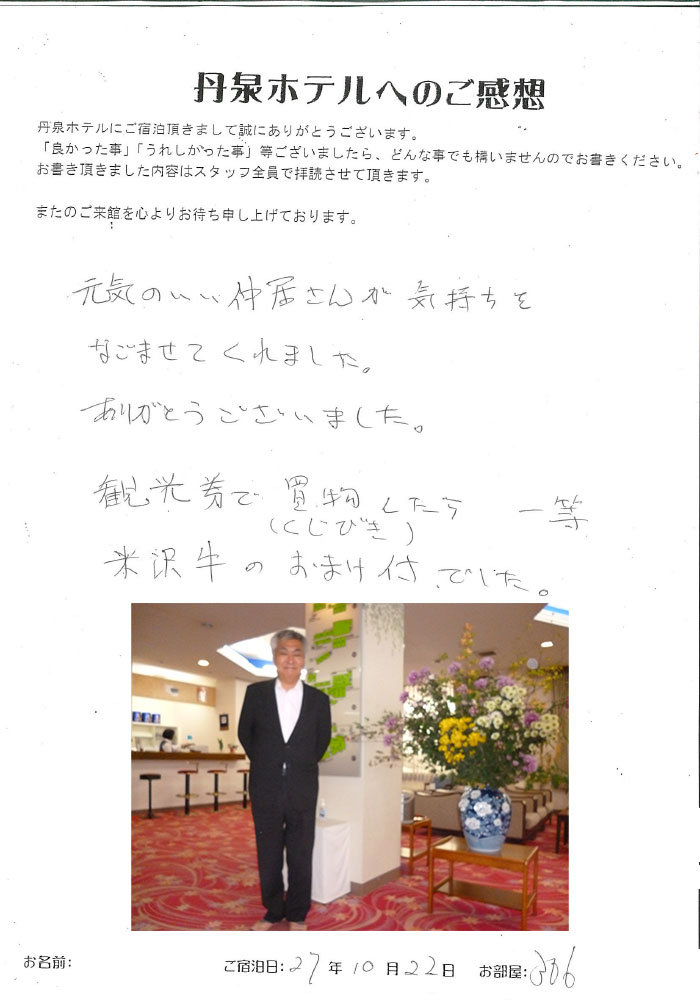 丹泉ホテルへのご感想
丹泉ホテルにご宿泊頂きまして誠にありがとうございます。
「良かった事」「うれしかった事」等ございましたら、どんな事でも構いませんのでお書きください。
お書き頂きました内容はスタッフ全員で拝読させて頂きます。
またのご来館を心よりお待ち申し上げております。
元気のいい仲居さんが気持ちを
なごませてくれました。
ありがとうございました。
観光券で買物したら 一等
(くじびき)
米沢牛のおまけ付でした。
お名前: ご宿泊日:27年10月22日 お部屋:306